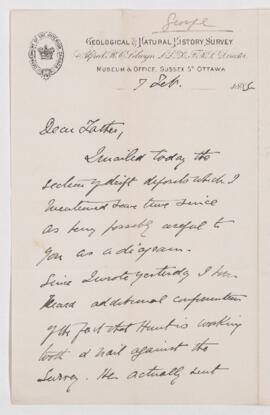 George
GEOLOGICAL & NATURAL HISTORY SURVEY
Alfred R. C. Selwyn L.L.D., F.R.S. Director
MUSEUM & OFFICE, SUSSEX ST OTTAWA
7 Feb. 188
Dear Father,
I mailed today the
section of drift deposits which I
mentioned some time since
as being possibly useful to
you as a diagram.
Since I wrote yesterday I have
heard additional confirmation
of the fact that Hunt is working
tooth & nail against the
Survey. He actually sent